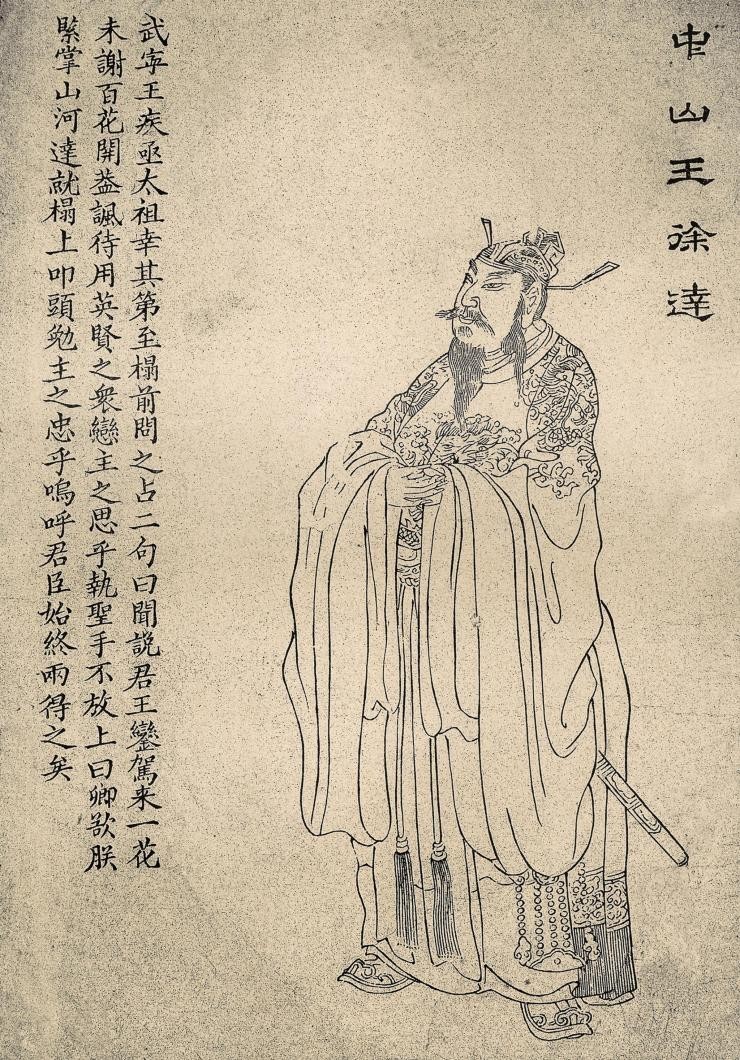 中山王徐達
武寧王疾亟太祖幸其第至榻前問之占二句曰聞説君王鑾駕来一花
未謝百花開葢諷待用英賢之衆戀主之思乎執聖手不放上曰卿欲朕
緊掌山河達就榻上叩頭勉主之忠乎嗚呼君臣始終兩得之矣